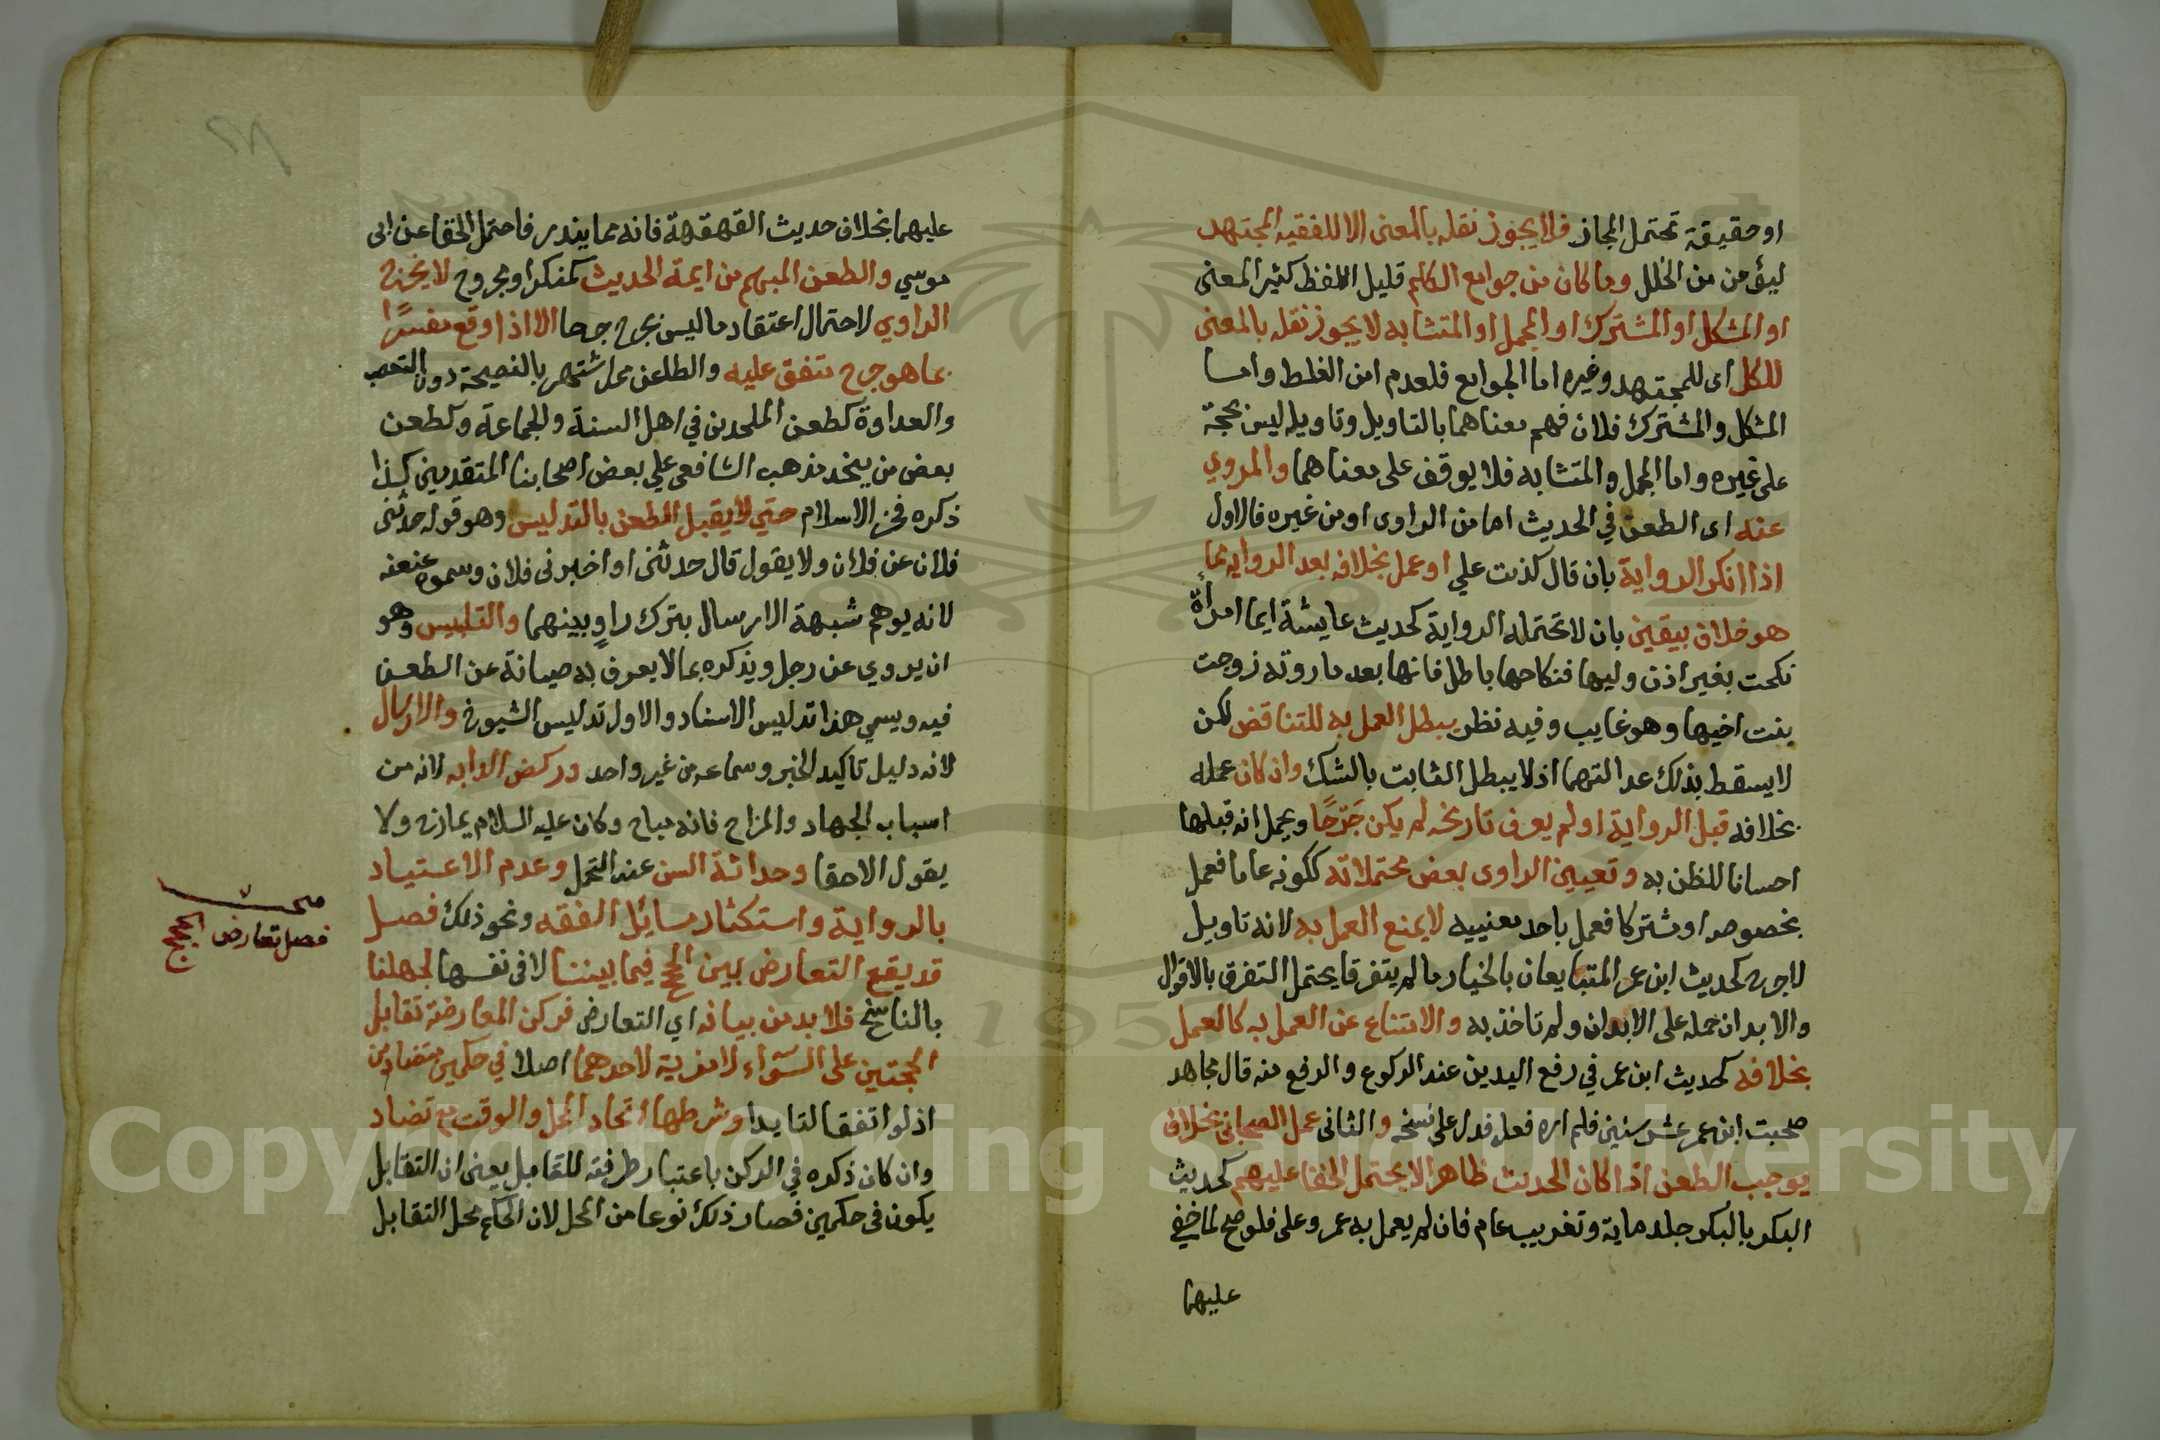 او حقيقة تحتمل المجاز فلا يجوز نقله بالمعنى الا للفقيه المجتهد
ليؤمن من الخلل وما كان من جوامع الكلم قليل اللفظ كثير المعنى
او المشكل او المشترك او المجمل او المتشابه لا يجوز نقله بالمعنى
للكل اى للمجتهد وغيره اما الجوامع فلعدم امن الغلط واما
المشكل والمشترك فلان فهم معناهما بالتاويل وتاويله ليس بحجة
على غيره واما المجمل والمتشابه فلا يوقف على معناهما والمروي
عنه اى الطعن في الحديث اما من الراوى او من غيره فالاول
اذا انكر الرواية بان قال كذبت علي او عمل بخلافه بعد الرواية مما
هو خلاف بيقين بان لا تحتمله الرواية كحديث عايشة ايما امرأة
نكحت بغير اذن وليها فنكاحها باطل فانها بعد ما روته زوجت
بنت اخيها وهو غايب وفيه نظر يبطل العمل به للتناقض لكن
لا يسقط بذلك عدالتهما اذ لا يبطل الثابت بالشك وان كان عمله
بخلافه قبل الرواية او لم يعرف تاريخه لم يكن جَرْحًا ويحمل انه قبلها
احسانا للظن به وتعيين الراوى بعض محتملاته ككونه عاما فعمل
بخصوصه او مشتركا فعمل باحد معنييه لا يمنع العمل به لانه تاويل
لا جرح كحديث ابن عمر المتبايعان بالخيار ما لم يتفرقا يحتمل التفرق بالاقوال
والابدان حمله على الابدان ولم ناخذ به والامتناع عن العمل به كالعمل
بخلافه كحديث ابن عمر في رفع اليدين عند الركوع والرفع منه قال مجاهد
صحبت ابن عمر عشر سنين فلم اره فعله فدل على نسخه والثانى عمل الصحابى بخلافه
يوجب الطعن اذا كان الحديث ظاهرا لا يحتمل الخفا عليهم كحديث
البكر بالبكر جلد ماية وتغريب عام فان لم يعمل به عمر وعلى فلو صح لما خفي
عليهما
عليهما بخلاف حديث القهقهة فانه مما يندر فاحتمل الخفا عن ابى
موسي والطعن المبهم من ايمة الحديث كمنكر او مجروح لا يجرح
الراوي لاحتمال اعتقاد ما ليس بجرح جرحا الا اذا وقع مفسرًا
بما هو جرح متفق عليه والطاعن ممن اشتهر بالنصيحة دون التعصب
والعداوة كطعن الملحدين في اهل السنة والجماعة وكطعن
بعض من ينحل مذهب الشافعى علي بعض اصحابنا المتقدمين كذا
ذكره فخر الاسلام حتي لا يقبل الطعن بالتدليس وهو قوله حدثنى
فلان عن فلان ولا يقول قال حدثنى او اخبرنى فلان وسموه عنعنه
لانه يوهم شبهة الارسال بترك راوٍ بينهما والتلبيس وهو
ان يروي عن رجل ويذكره بما لا يعرف به صيانة عن الطعن
فيه ويسمي هذا تدليس الاسناد والاول تدليس الشيوخ والارسال
لانه دليل تاكيد الخبر وسماعه من غير واحد وركض الدابه لانه من
اسباب الجهاد والمزاح فانه مباح وكان عليه السلام يمازح ولا
يقول الا حقا وحداثة السن عند التحمل وعدم الاعتياد
بالرواية واستكثار مسائل الفقه ونحو ذلك فصل
قد يقع التعارض بين الحجج فيما بيننا لا فى نفسها لجهلنا
بالناسخ فلا بد من بيانه اي التعارض فركن المعارضة تقابل
الحجتين على السَّواء لا مزية لاحدهما اصلا في حكمين متضادين
اذ لو اتفقا لتايدا وشرطها اتحاد المحل والوقت مع تضاد
وان كان ذكره في الركن باعتبار ظرفيته للتقابل يعنى ان التقابل
يكون فى حكمين فصار ذلك نوعا من المحل لان الحكم محل التقابل
مبحث
فصل تعارض الحجج
Copyright © King Saud University
1957